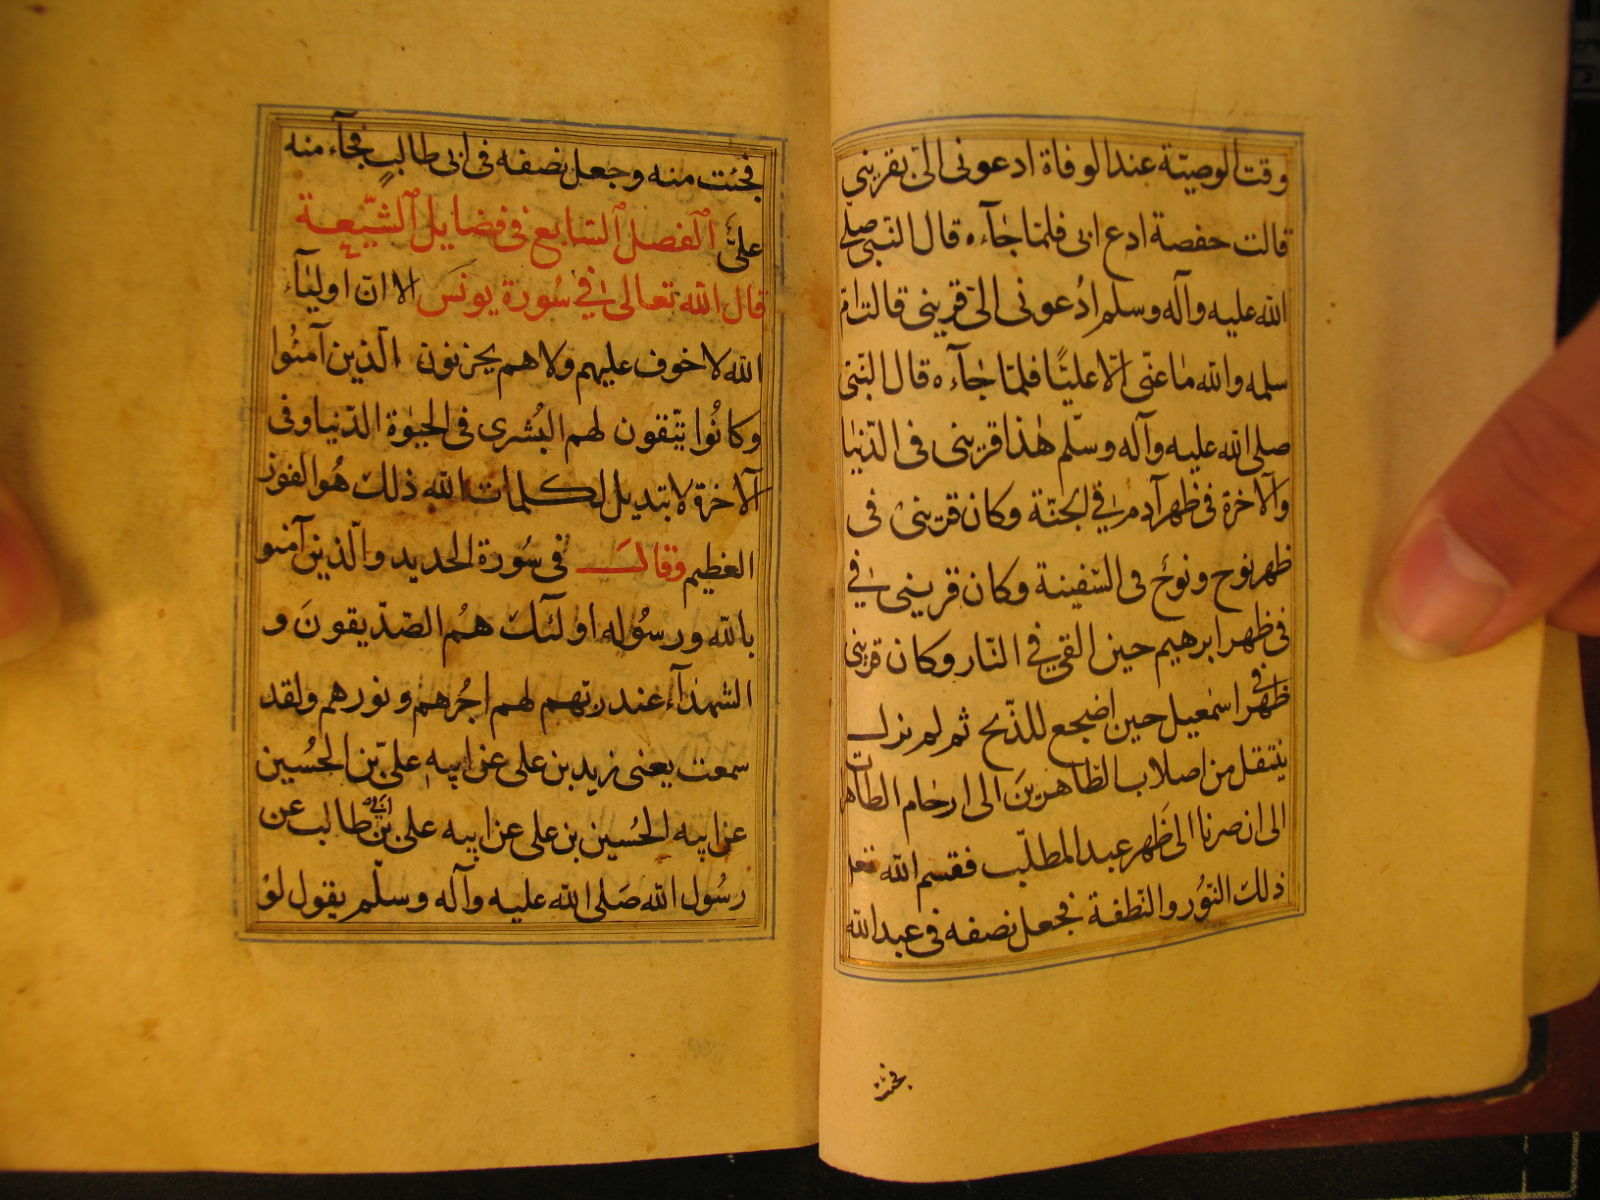 وقت الوصيّة عند الوفاة ادعونى الىّ بقرينى
قالت حفصة ادع ابى فلمّا جاءه قال النبى صلى
الله عليه وآله وسلم ادُعونى الىّ قرينى قالت امّ
سلمه والله ماعنّى الّا عليًّا فلمّا جاءه قال النبّى
صلى الله عليه وآله وسلّم هذا قرينى فى الدّنيا
والآخرة فى ظهر آدم فى الجنّة وكان قرينى فى
ظهر نوح ونوح فى السّفينة وكان قرينى فى
فى ظهر ابرهيم حين القى فى النّار وكان قرينى
فى ظهر اسمعيل حين اضجع للذّبح ثم لم نزل
ينتقل من اصلاب الطاهرين الى ارحام الطاهرات
الى ان صرنا الى ظَهر عبد المطلّب فقسم الله تعلى
ذلك النّوُر والنّطفة فجعل نصفه فى عبد الله
فجئت
فجئت منه وجعل نصفه فى ابى طالب فجآء منه
علىّ الفصل السّابع فى فضايل الشّيعة
قال الله تعالى فى سُورة يونسَ الا انّ اوليآء
الله لا خوف عليهم ولا هم يحزنون الّذين آمنُوا
وكانُوا يتّقون لهم البُشرى فى الحيوٰة الدّنيا وفى
الآخرة لا تبديل لكلمات الله ذلك هُو الفوز
العظيم وقال فى سُورة الحديد والّذين آمنو
بالله ورسُوله اولئك هُم الصّدّيقونَ و
الشهدآء عند ربّهم لهم اجُرهم ونورهم ولقد
سمعت يعنى زيد بن على عن ابيه علىّ بن الحُسين
عن ابيه الحُسين بن على عن ابيه على بن ابى طالب عن
رسُول الله صَلى الله عليه وآله وسلّم يقول لوُ